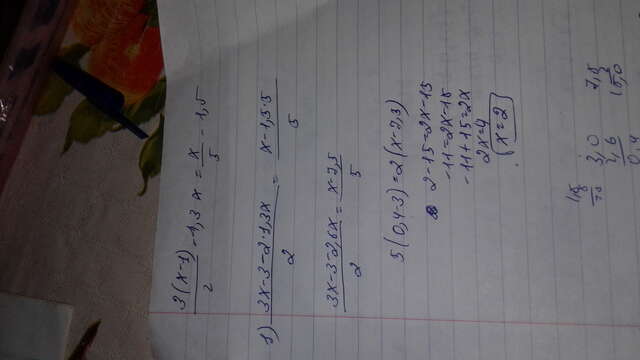 3(x-1)/2 - 1,3x = x/5 - 1,5
1) 3x-3-2·1,3x/2 = x-1,5·5/5
3x-3-2,6x/2 = x-7,5/5
5(0,4-3)=2(x-7,5)
2-15=2x-15
-11=2x-15
-11+15=2x
2x=4
x=2
3,0 7,5
2,6 15,0
0,4